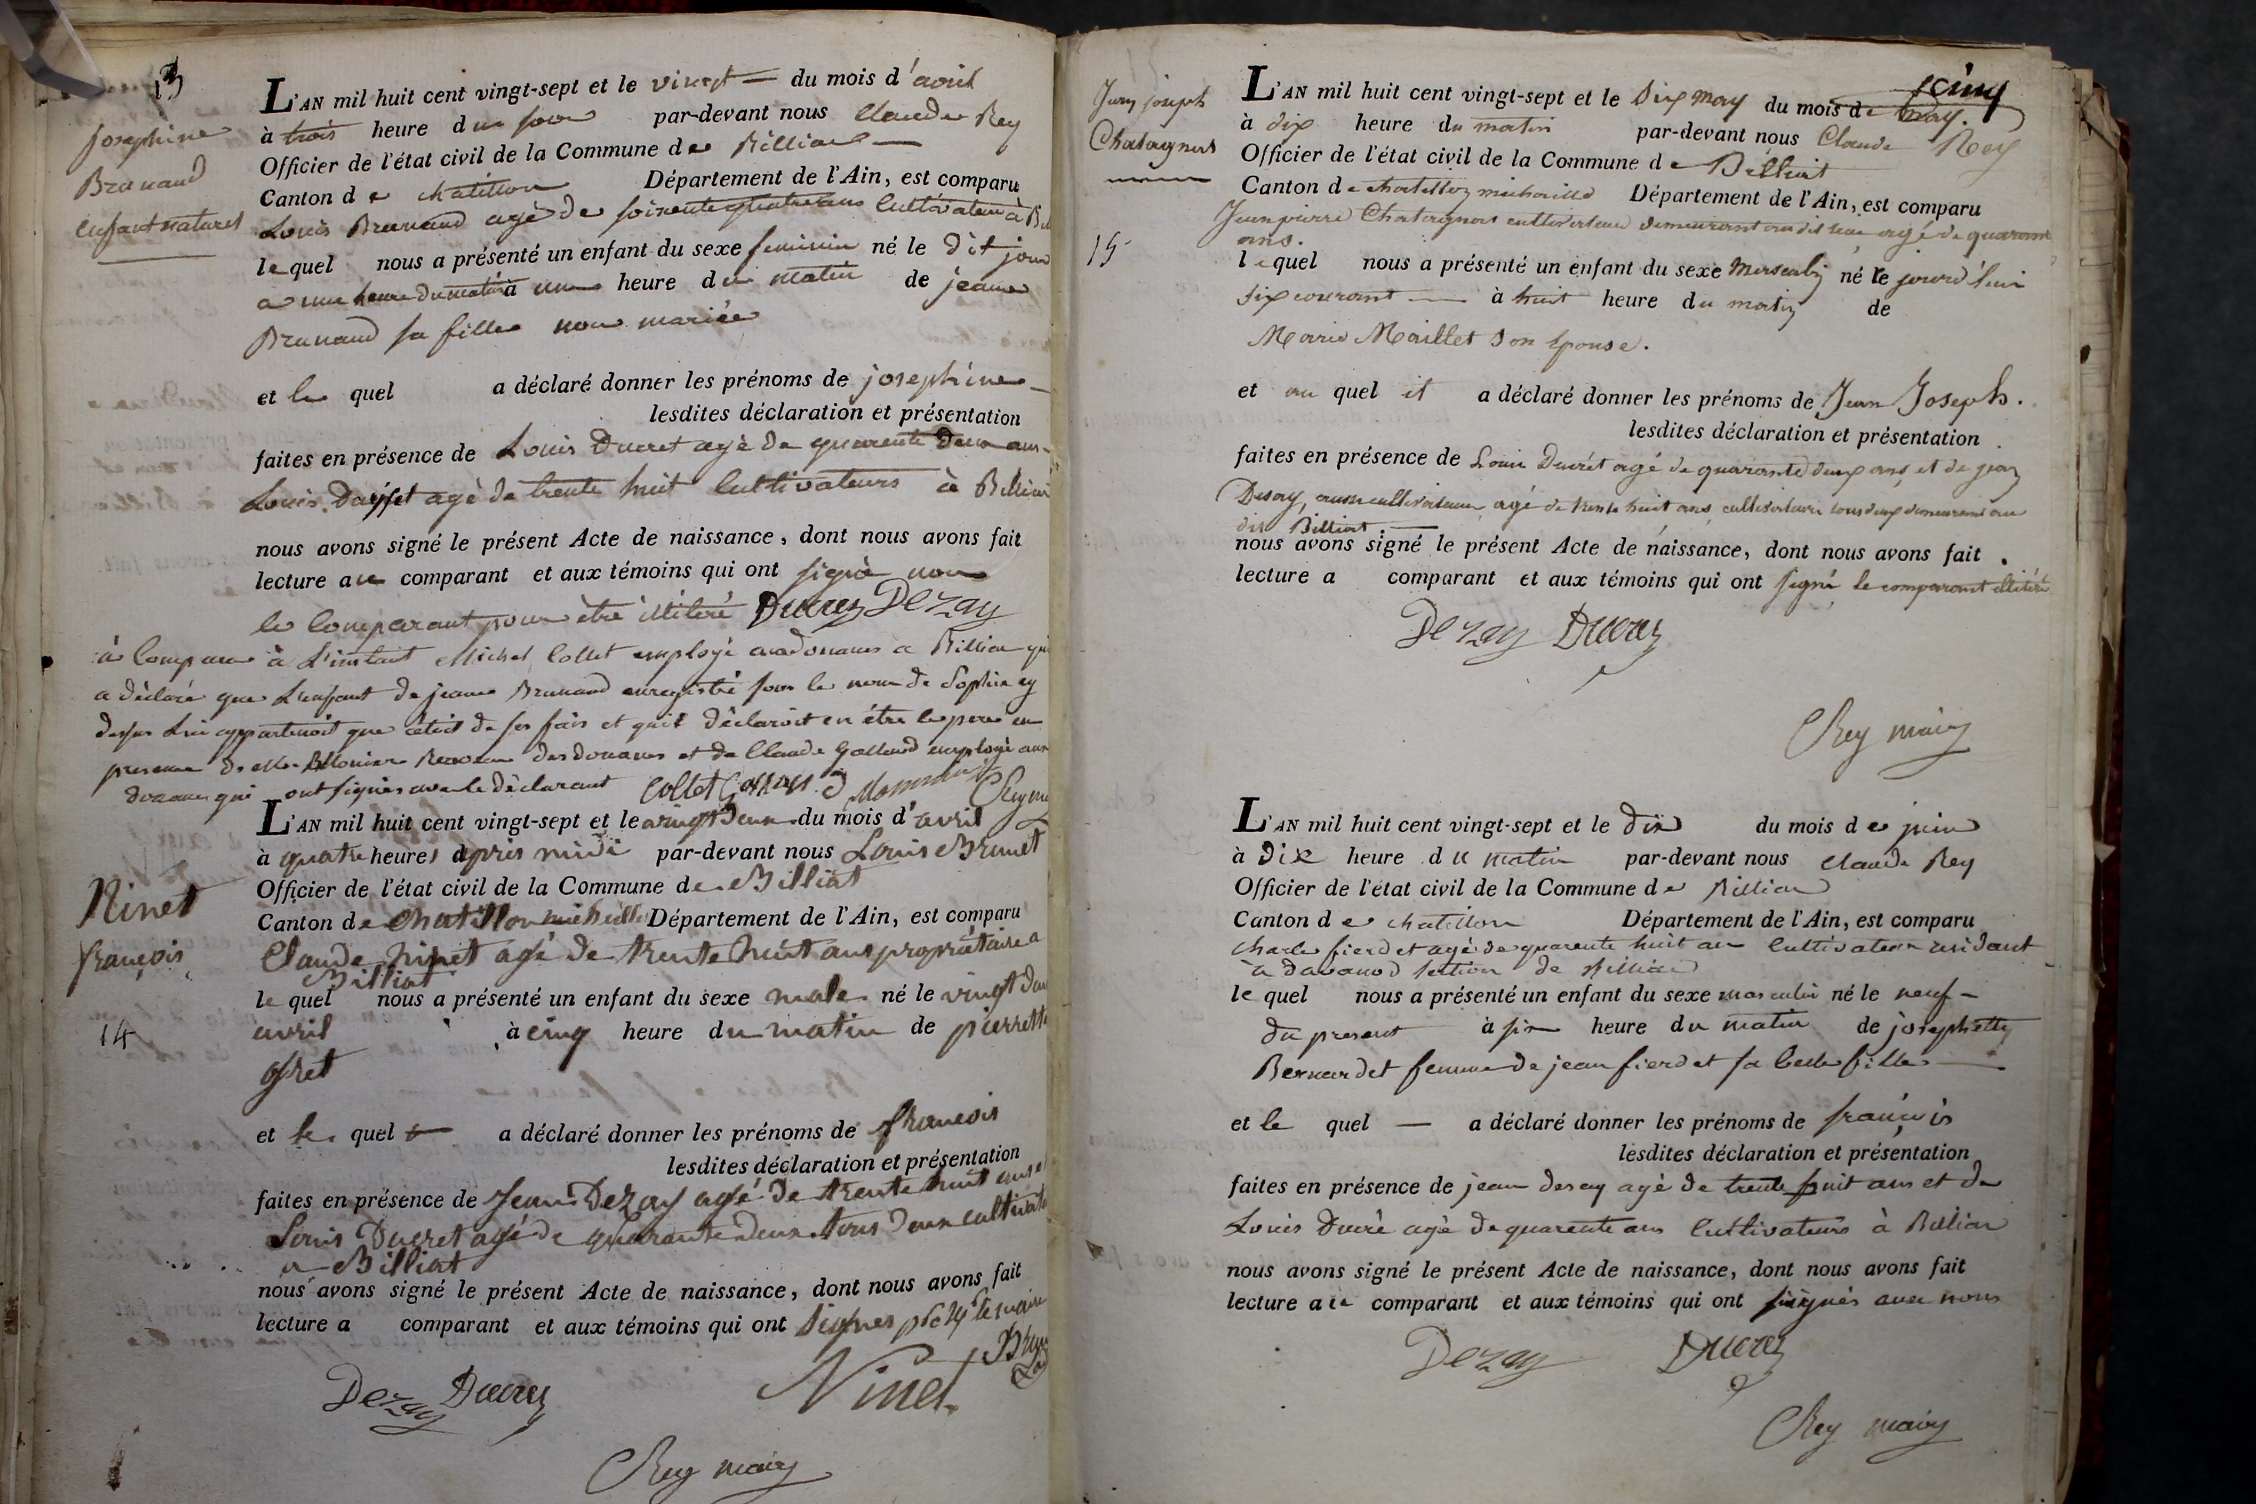 13
Josephine
Brunand
enfant naturel
L'AN mil huit cent vingt-sept et le vingt du mois d'avril
à trois heure du soir par-devant nous Claude Rey
Officier de l'état civil de la Commune de Billiat
Canton de chatillon Département de l'Ain, est comparu
Louis Brunand agé de soixente quatre ans Cultivateur à
lequel nous a présenté un enfant du sexe feminin né le dit jour
a une heure du matin à une heure du matin de jeanne
Brunand sa fille non mariée
et le quel a déclaré donner les prénoms de josephine
lesdites déclaration et présentation
faites en présence de Louis Ducret agé de quarente deux ans
Louis agé de trente huit Cultivateurs à Billiat
nous avons signé le présent Acte de naissance, dont nous avons fait
lecture au comparant et aux témoins qui ont signé non
le Comparant pour être illiteré Ducrez Dezay
à Comparu à L'instant Michel Collet employé aux douanes a Billiat qui
a déclaré que L'enfant de jeanne Brunand enregistré sous le nom de Sophie cy
dessus Lui appartenoit que cétoit de ses fais et quil déclaroit en être le pere en
presence de des douanes et de Claude employé aux
douanes qui ont signés avec le déclarant Collet
Ninet
françois
14
L'AN mil huit cent vingt-sept et le vingt deux du mois d'avril
à quatre heures après midi par-devant nous Louis Brunet
Officier de l'état civil de la Commune de Billiat
Canton de Chatillon michaille Département de l'Ain, est comparu
Claude Ninet agé de trente huit ans propriétaire a
Billiat
le quel nous a présenté un enfant du sexe male né le vingt deux
avril à cinq heure du matin de pierrette
Gret
et le quel a déclaré donner les prénoms de françois
lesdites déclaration et présentation
faites en présence de Jean Dezay agé de trente huit ans et
Louis Ducret agé de quarante deux tous deux cultivateurs
a Billiat
nous avons signé le présent Acte de naissance, dont nous avons fait
lecture a comparant et aux témoins qui ont signés le maire
Dezay Ducrez Ninet
Rey maire
Jean joseph
Chatagnat
15
L'AN mil huit cent vingt-sept et le dix may du mois de may.
à dix heure du matin par-devant nous Claude Rey
Officier de l'état civil de la Commune de Billiat
Canton de chatillon michaille Département de l'Ain, est comparu
Jean pierre Chatagnat cultivateur demeurant au dit lieu agé de quarante
ans.
lequel nous a présenté un enfant du sexe masculin né le jourd'hui
dix courant à huit heure du matin de
Marie Maillet son épouse.
et au quel il a déclaré donner les prénoms de Jean Joseph.
lesdites déclaration et présentation
faites en présence de Louis Ducret agé de quarante deux ans et de jean
Desay, aussi cultivateur, agé de trente huit ans, cultivateurs tous deux demeurant au
dit Billiat.
nous avons signé le présent Acte de naissance, dont nous avons fait
lecture a comparant et aux témoins qui ont signé le comparant illitéré
Dezay Ducrez
Rey maire
L'AN mil huit cent vingt-sept et le dix du mois de juin
à dix heure du matin par-devant nous Claude Rey
Officier de l'état civil de la Commune de Billiat
Canton de chatillon Département de l'Ain, est comparu
Charle fierdet agé de quarente huit an Cultivateur residant
à davanod section de Billiat
lequel nous a présenté un enfant du sexe masculin né le neuf
du present à six heure du matin de josephette
Bernardet femme de jean fierdet sa belle fille
et le quel a déclaré donner les prénoms de françois
lesdites déclaration et présentation
faites en présence de jean desay agé de trente huit ans et de
Louis Ducré agé de quarente ans Cultivateurs à Billiat
nous avons signé le présent Acte de naissance, dont nous avons fait
lecture au comparant et aux témoins qui ont signés avec nous
Dezay Ducrez
Rey maire